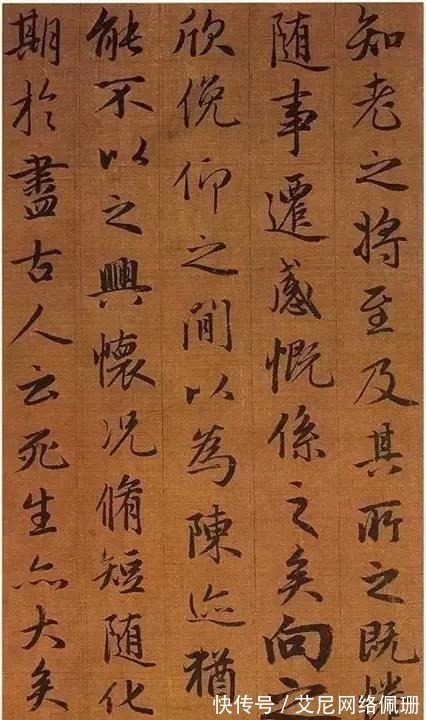 知老之将至及其所之既惓
随事遷感慨係之矣向之
欣俛仰之間以為陳迹猶
能不以之興懷况脩短随化
期於盡古人云死生亦大矣
快传号/艾尼网络佩珊